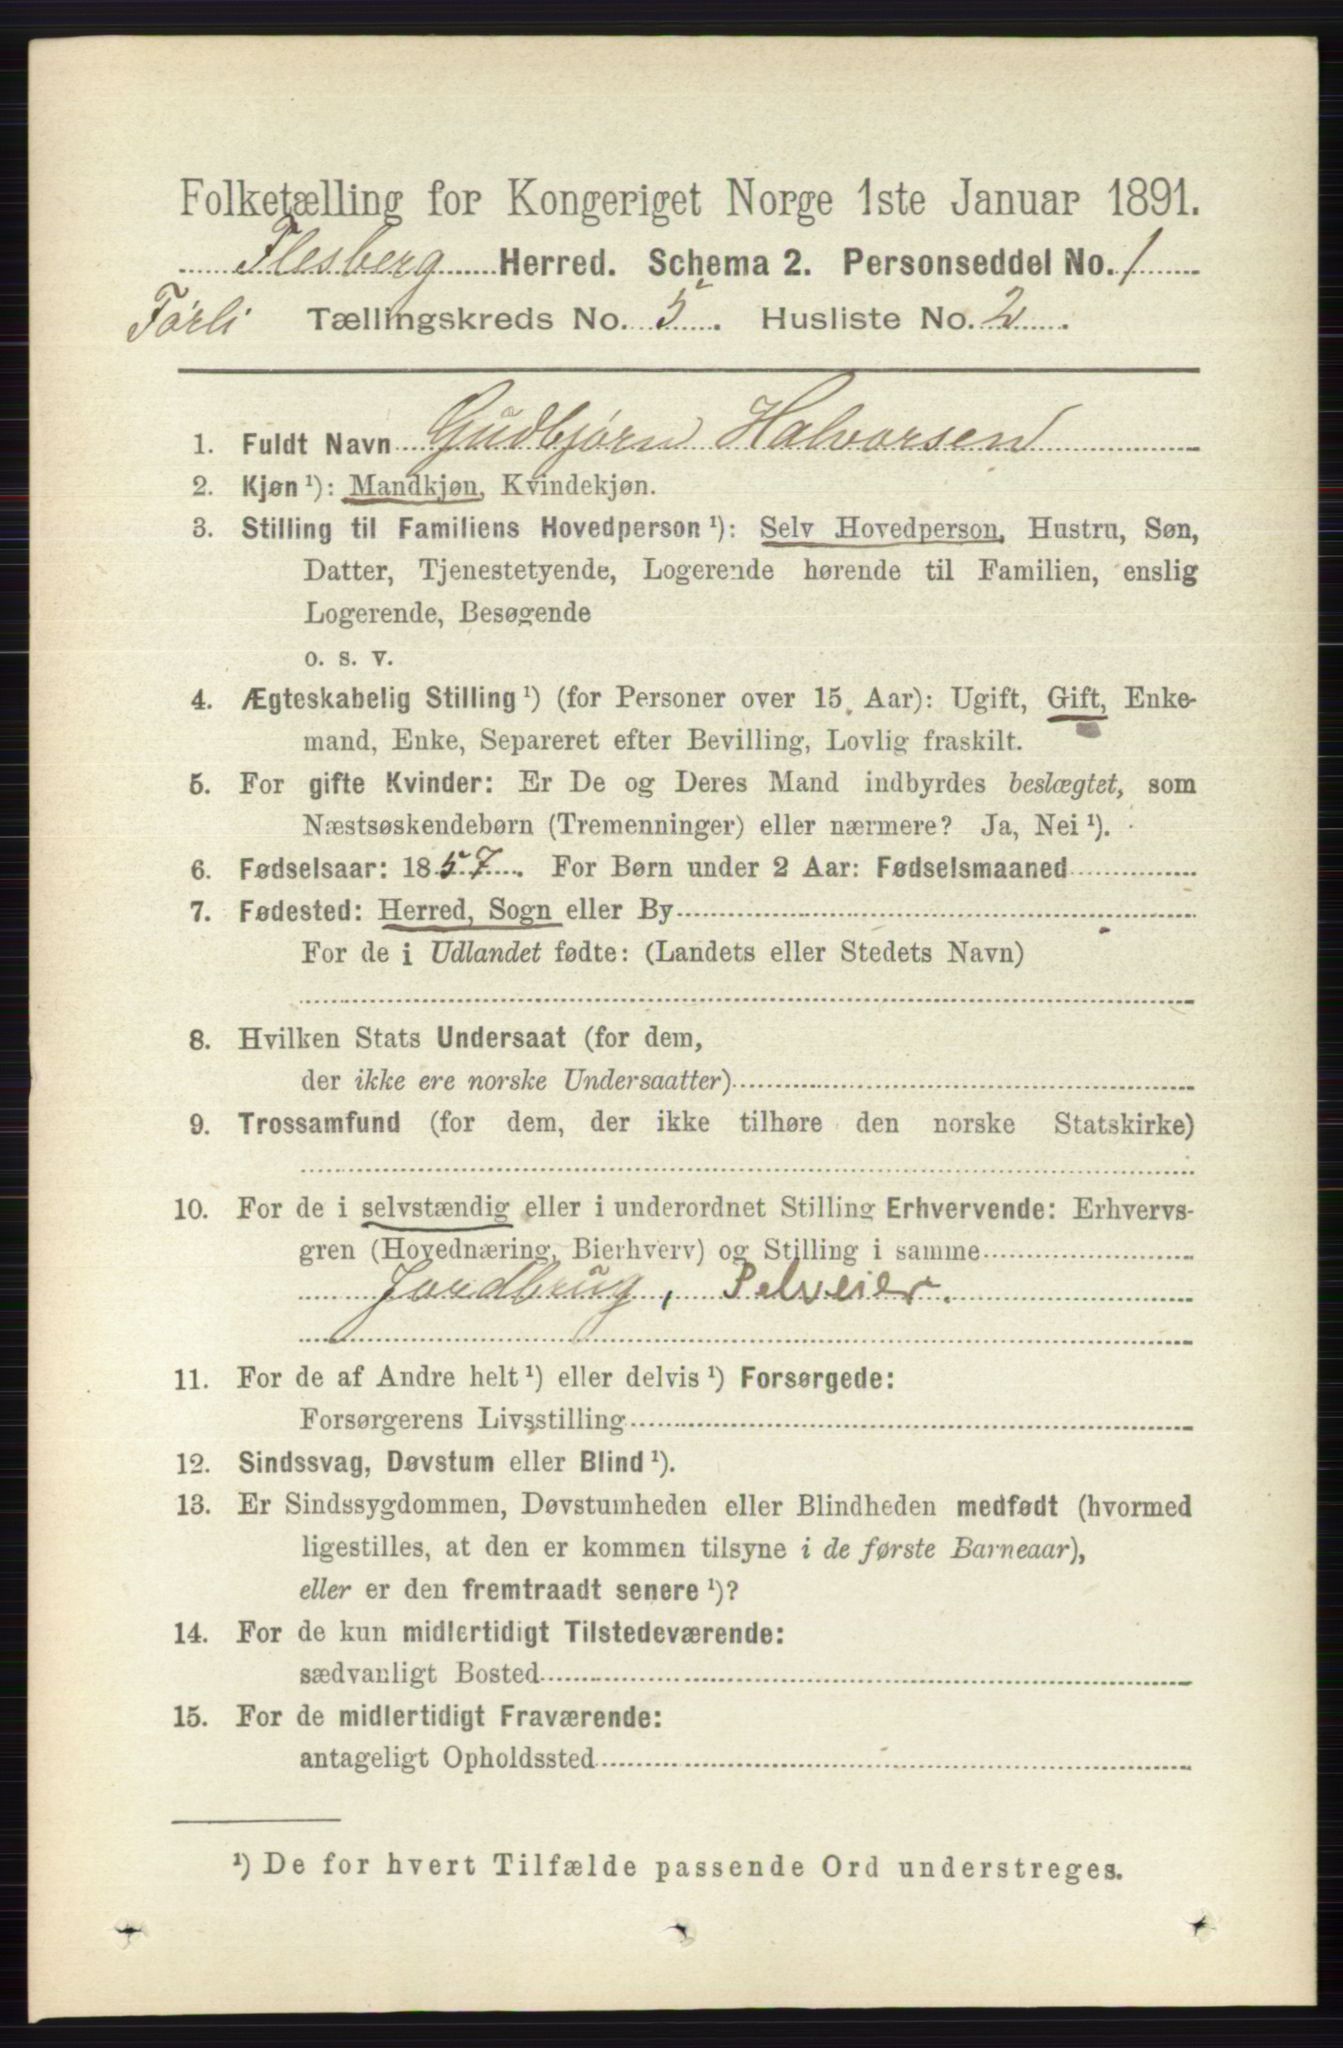 Folketælling for Kongeriget Norge 1ste Januar 1891.
Flesberg Herred. Schema 2. Personseddel No. 1
Førli Tællingskreds No. 5. Husliste No. 2.
1. Fuldt Navn Gudbjørn Halvorsen
2. Kjøn ¹): Mandkjøn, Kvindekjøn.
3. Stilling til Familiens Hovedperson ¹): Selv Hovedperson, Hustru, Søn,
Datter, Tjenestetyende, Logerende hørende til Familien, enslig
Logerende, Besøgende
o. s. v.
4. Ægteskabelig Stilling ¹) (for Personer over 15 Aar): Ugift, Gift, Enke-
mand, Enke, Separeret efter Bevilling, Lovlig fraskilt.
5. For gifte Kvinder: Er De og Deres Mand indbyrdes beslægtet, som
Næstsøskendebørn (Tremenninger) eller nærmere? Ja, Nei ¹).
6. Fødselsaar: 1857. For Børn under 2 Aar: Fødselsmaaned
7. Fødested: Herred, Sogn eller By
For de i Udlandet fødte: (Landets eller Stedets Navn)
8. Hvilken Stats Undersaat (for dem,
der ikke ere norske Undersaatter)
9. Trossamfund (for dem, der ikke tilhøre den norske Statskirke)
10. For de i selvstændig eller i underordnet Stilling Erhvervende: Erhvervs-
gren (Hovednæring, Bierhverv) og Stilling i samme
Jordbrug, Selveier.
11. For de af Andre helt ¹) eller delvis ¹) Forsørgede:
Forsørgerens Livsstilling
12. Sindssvag, Døvstum eller Blind ¹).
13. Er Sindssygdommen, Døvstumheden eller Blindheden medfødt (hvormed
ligestilles, at den er kommen tilsyne i de første Barneaar),
eller er den fremtraadt senere ¹)?
14. For de kun midlertidigt Tilstedeværende:
sædvanligt Bosted
15. For de midlertidigt Fraværende:
antageligt Opholdssted
¹) De for hvert Tilfælde passende Ord understreges.